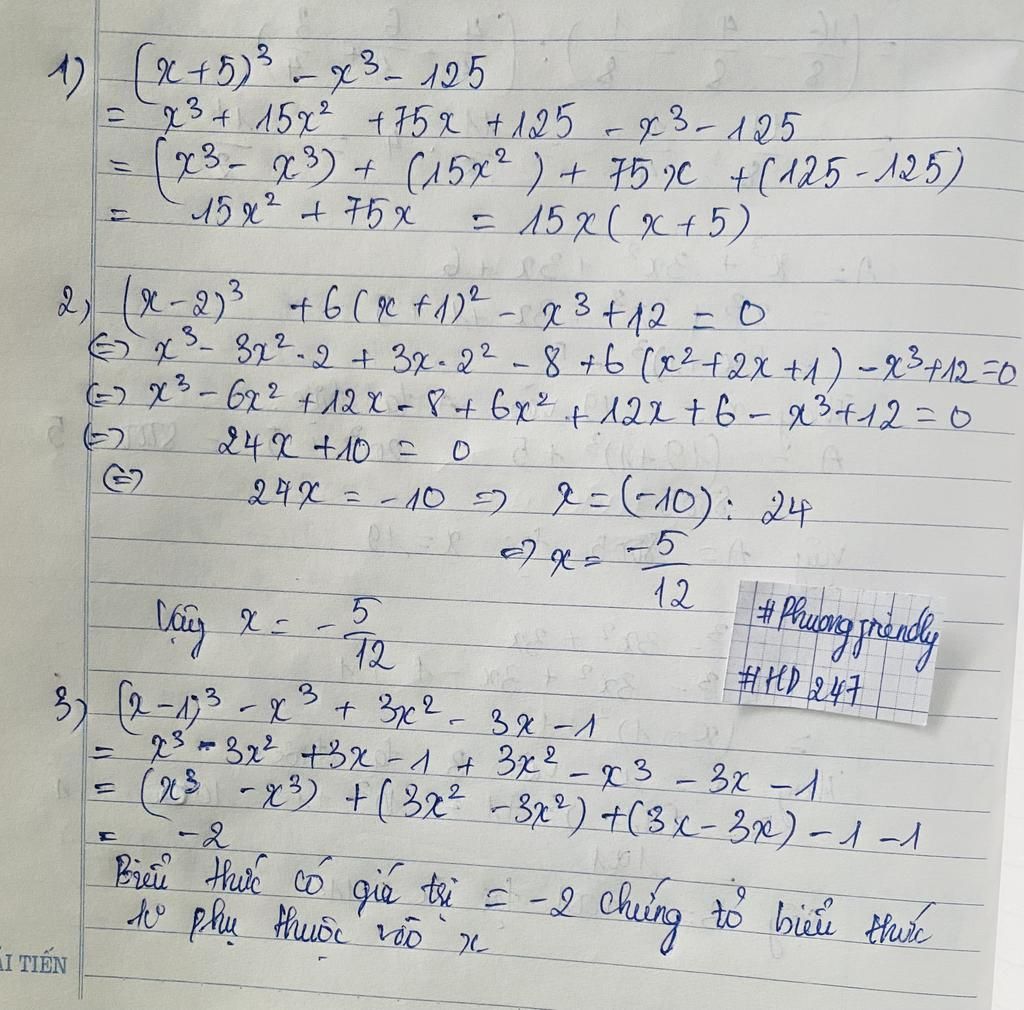 1) (x+5)³ - x³ - 125
= x³ + 15x² + 75x + 125 - x³ - 125
= (x³ - x³) + (15x²) + 75x + (125 - 125)
= 15x² + 75x = 15x(x+5)
2) (x-2)³ + 6(x+1)² - x³ + 12 = 0
<=> x³ - 3x²·2 + 3x·2² - 8 + 6(x²+2x+1) - x³+12=0
<=> x³ - 6x² + 12x - 8 + 6x² + 12x + 6 - x³ + 12 = 0
<=> 24x + 10 = 0
<=> 24x = -10 => x = (-10) : 24
=> x = -5/12
Vậy x = -5/12
#Phuongfriendly
#HD 247
3) (x-1)³ - x³ + 3x² - 3x - 1
= x³ - 3x² + 3x - 1 + 3x² - x³ - 3x - 1
= (x³ - x³) + (3x² - 3x²) + (3x - 3x) - 1 - 1
= -2
Biểu thức có giá trị = -2 chứng tỏ biểu thức
k° phụ thuộc vào x
ẢI TIẾN